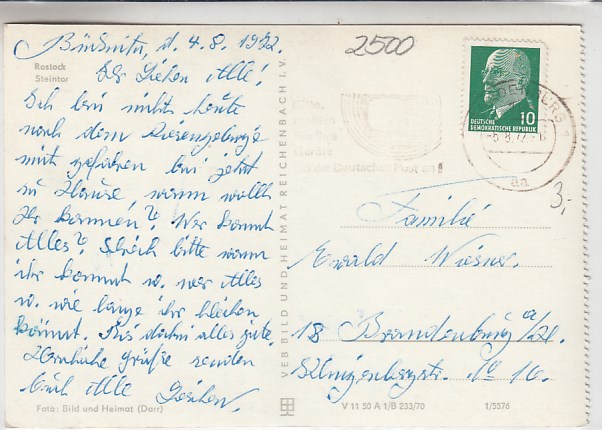 d. 4.8.1972.
2500
Rostock
Steintor
Ihr Lieben Alle!
Ich bin nicht heute
nach dem Riesengebirge
mit gefahren bin jetzt
zu Hause, wann wollt
Ihr kommen? Wer kommt
Alles? Schreib bitte wann
ihr kommt u. wer Alles
u. wie lange ihr bleiben
könnt. Bis dahin alles gute.
Herzliche Grüße senden
Euch Alle
Foto: Bild und Heimat (Darr)
VEB BILD UND HEIMAT REICHENBACH I. V.
10
DEUTSCHE
DEMOKRATISCHE REPUBLIK
der Deutschen Post an!
da
3,-
Familie
Ewald Wiesner.
18 Brandenburg a/H.
Klingenbergstr. No 16.
V 11 50 A 1/B 233/70
1/5576